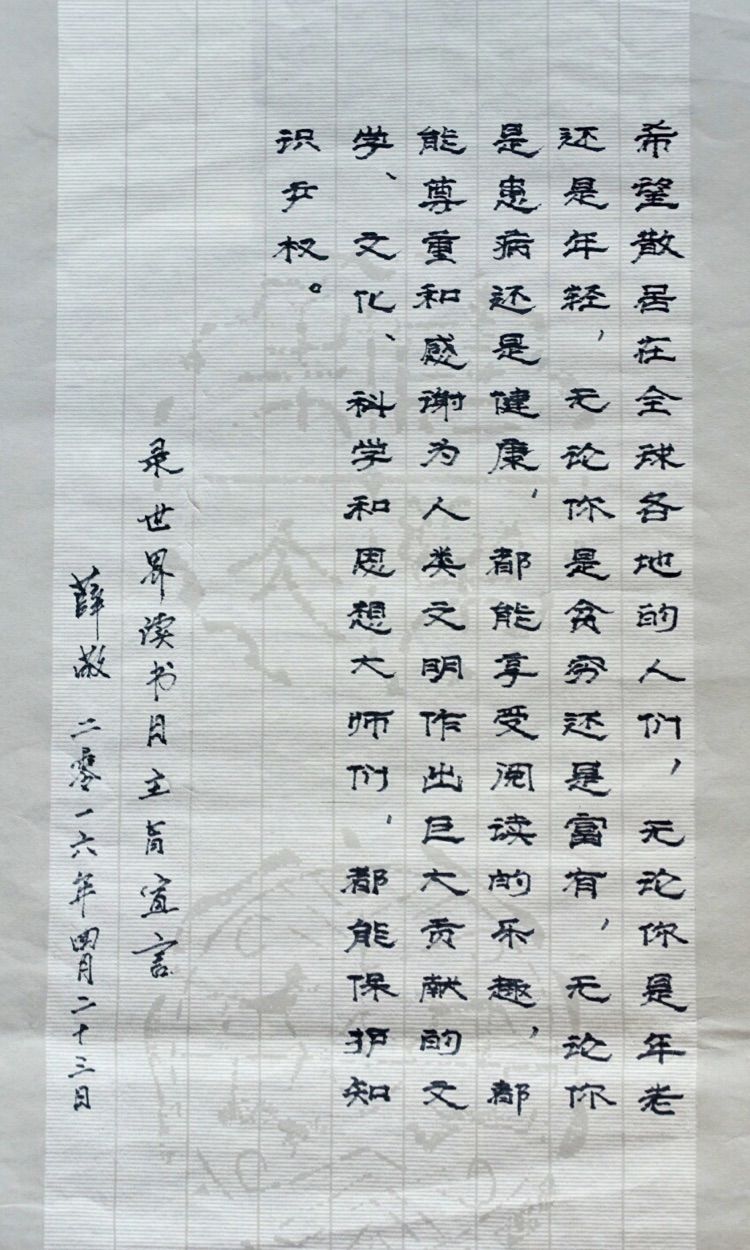 希望散居在全球各地的人们，无论你是年老
还是年轻，无论你是贪穷还是富有，无论你
是患病还是健康，都能享受阅读的乐趣，都
能尊重和感谢为人类文明作出巨大贡献的文
学、文化、科学和思想大师们，都能保护知
识产权。
录世界读书日主旨宣言
薛敬 二零一六年四月二十三日